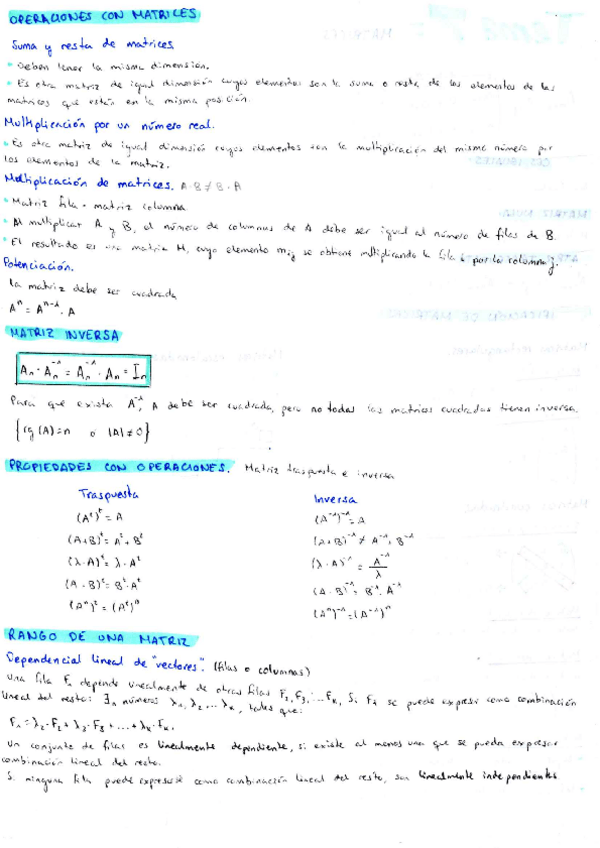 OPERACIONES CON MATRICES
Suma y resta de matrices
• Deben tener la misma dimensión.
• Es otra matriz de igual dimensión cuyos elementos son la suma o resta de los elementos de las
matrices que están en la misma posición.
Multiplicación por un número real.
• Es otra matriz de igual dimensión cuyos elementos son la multiplicación del mismo número por
los elementos de la matriz.
Multiplicación de matrices. A·B ≠ B·A
• Matriz fila · matriz columna
• Al multiplicar A y B, el número de columnas de A debe ser igual al número de filas de B.
• El resultado es una matriz M, cuyo elemento mij se obtiene multiplicando la fila i por la columna j.
Potenciación.
La matriz debe ser cuadrada
Aⁿ = Aⁿ⁻¹ · A
MATRIZ INVERSA
Aₙ · Aₙ⁻¹ = Aₙ⁻¹ · Aₙ = Iₙ
Para que exista A⁻¹, A debe ser cuadrada, pero no todas las matrices cuadradas tienen inversa.
{rg(A)=n o |A|≠0}
PROPIEDADES CON OPERACIONES. Matriz traspuesta e inversa
Traspuesta Inversa
(Aᵗ)ᵗ = A (A⁻¹)⁻¹ = A
(A+B)ᵗ = Aᵗ + Bᵗ (A+B)⁻¹ ≠ A⁻¹ + B⁻¹
(λ·A)ᵗ = λ·Aᵗ (λ·A)⁻¹ = A⁻¹/λ
(A·B)ᵗ = Bᵗ·Aᵗ (A·B)⁻¹ = B⁻¹·A⁻¹
(Aⁿ)ᵗ = (Aᵗ)ⁿ (Aⁿ)⁻¹ = (A⁻¹)ⁿ
RANGO DE UNA MATRIZ
Dependencial lineal de "vectores". (filas o columnas)
Una fila F₁ depende linealmente de otras filas F₂, F₃, ... Fₖ, Si F₁ se puede expresar como combinación
lineal del resto: ∃ₙ números λ₁, λ₂ ... λₖ, tales que:
F₁ = λ₂·F₂ + λ₃·F₃ + ... + λₖ·Fₖ.
Un conjunto de filas es linealmente dependiente, si existe al menos una que se pueda expresar
combinación lineal del resto.
Si ninguna fila puede expresarse como combinación lineal del resto, son linealmente independientes